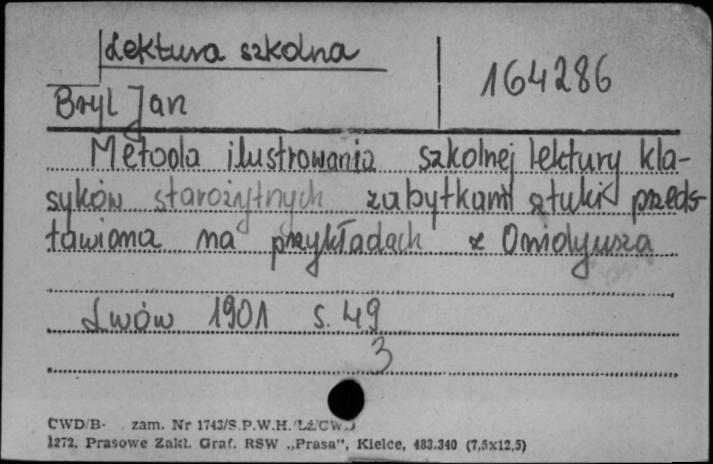 Lektura szkolna
164286
Bryl Jan
Metoda ilustrowania szkolnej lektury kla-
syków starożytnych zabytkami sztuki przeds-
tawiona na przykładach z Owidyusza
Lwów 1901 s. 49
3
CWD/B- zam. Nr 1743/S.P.W.H. Łż/CWD
1272. Prasowe Zakł. Graf. RSW „Prasa”, Kielce, 483.340 (7,5x12,5)